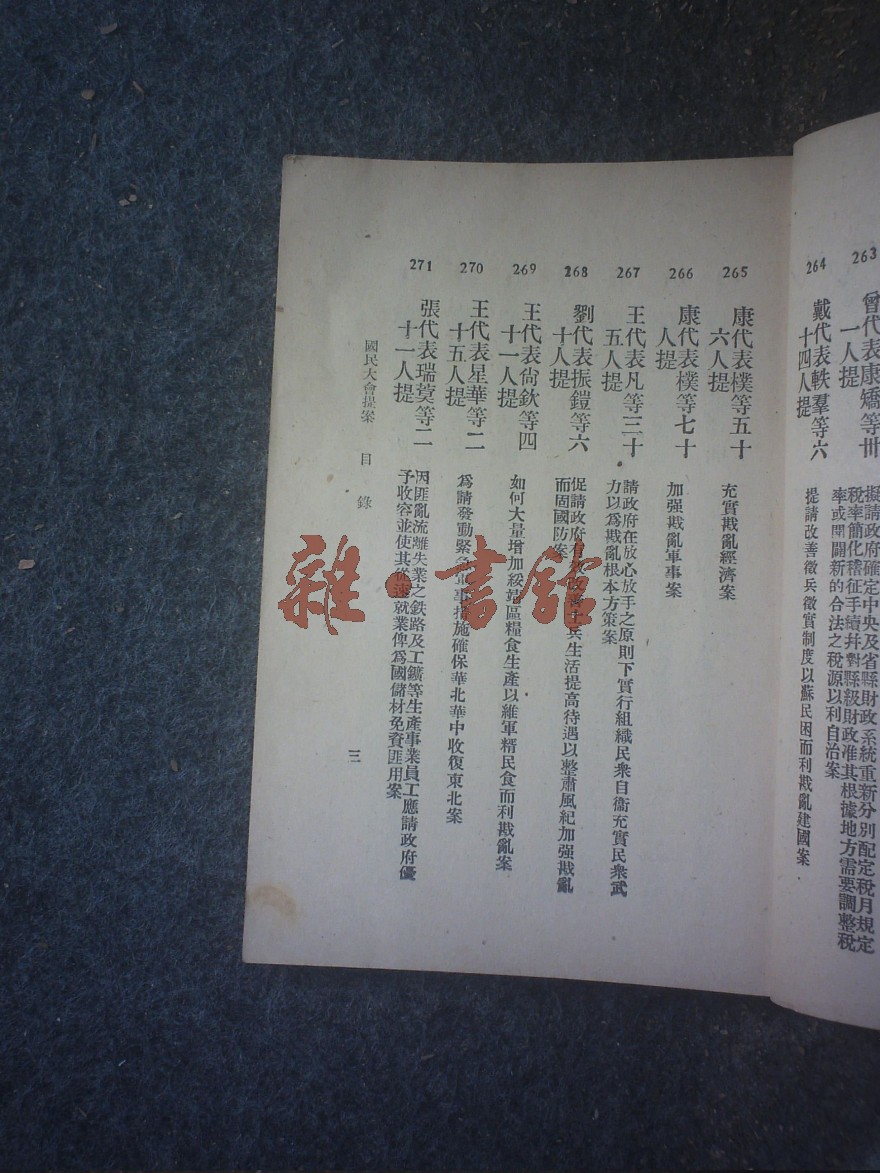 263
曾代表康矯等卅
一人提
擬請政府確定中央及省縣財政系統重新分別配定稅月規定
稅率簡化稽征手續并對縣級財政准其根據地方需要調整稅
率或開闢新的合法之稅源以利自治案
264
戴代表軼羣等六
十四人提
提請改善徵兵徵實制度以蘇民困而利戡亂建國案
265
康代表樸等五十
六人提
充實戡亂經濟案
266
康代表樸等七十
人提
加强戡亂軍事案
267
王代表凡等三十
五人提
請政府在放心放手之原則下實行組織民衆自衞充實民衆武
力以爲戡亂根本方策案
268
劉代表振鎧等六
十人提
促請政府有效改善士兵生活提高待遇以整肅風紀加强戡亂
而固國防案
269
王代表尙欽等四
十一人提
如何大量增加綏靖區糧食生產以維軍糈民食而利戡亂案
270
王代表星華等二
十五人提
爲請發動緊急軍事措施確保華北華中收復東北案
271
張代表瑞蓂等二
十一人提
因匪亂流離失業之鉄路及工鑛等生產事業員工應請政府優
予收容並使其從速就業俾爲國儲材免資匪用案
國民大會提案 目錄
三
雜·書館